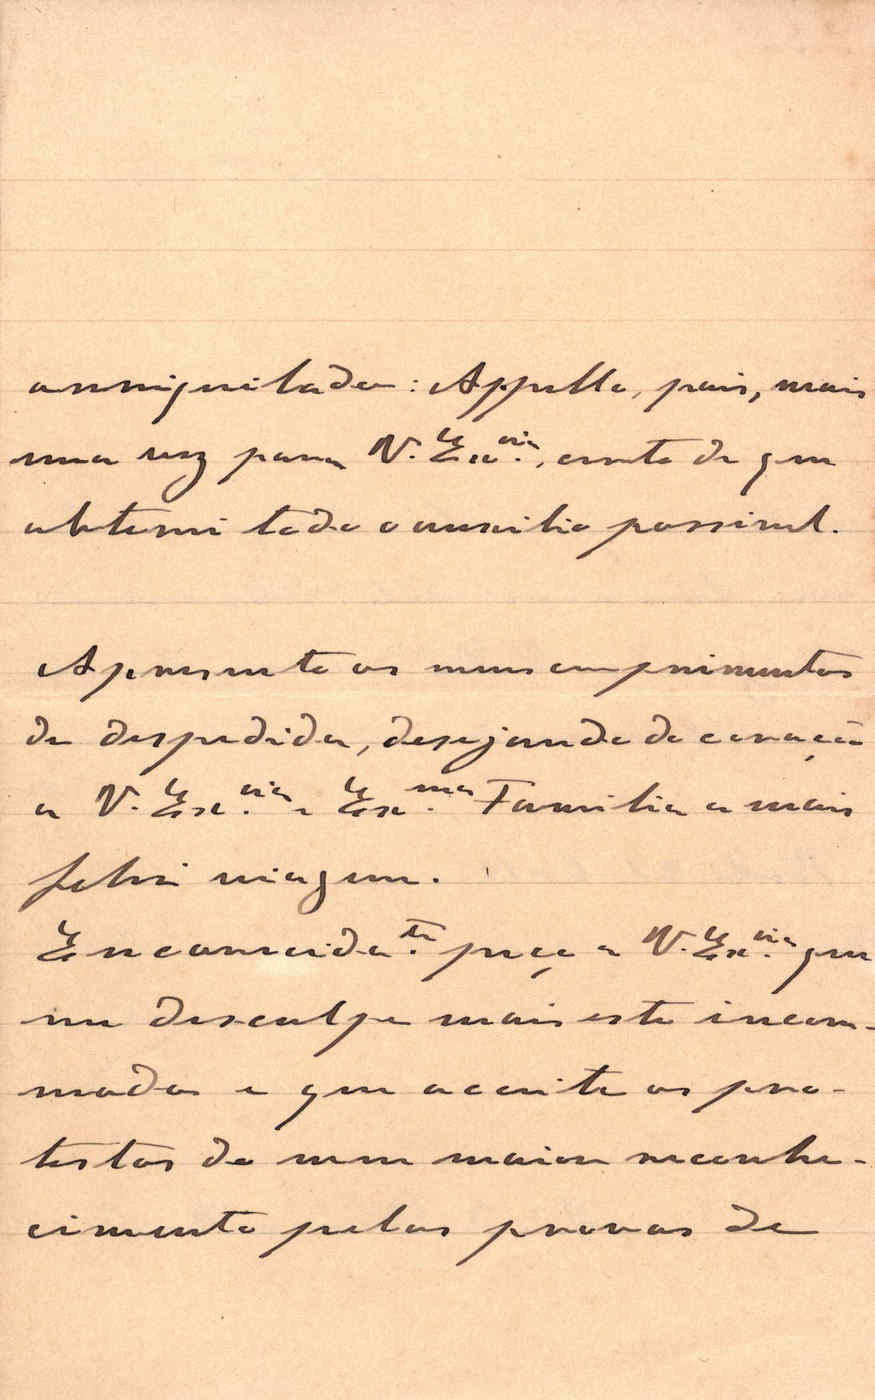 anniquilada: Appello, pois, mais
uma vez para V. Ex.cia, certo de que
obterei todo o auxilio possivel.
Apresento os meus cumprimentos
de despedida, desejando de coração
a V. Ex.cia e Ex.ma Familia a mais
feliz viagem.
Encarecida.te peço a V. Ex.cia que
me desculpe mais este incom-
modo e que aceite os pro-
testos do meu maior reconhe-
cimento pelas provas de